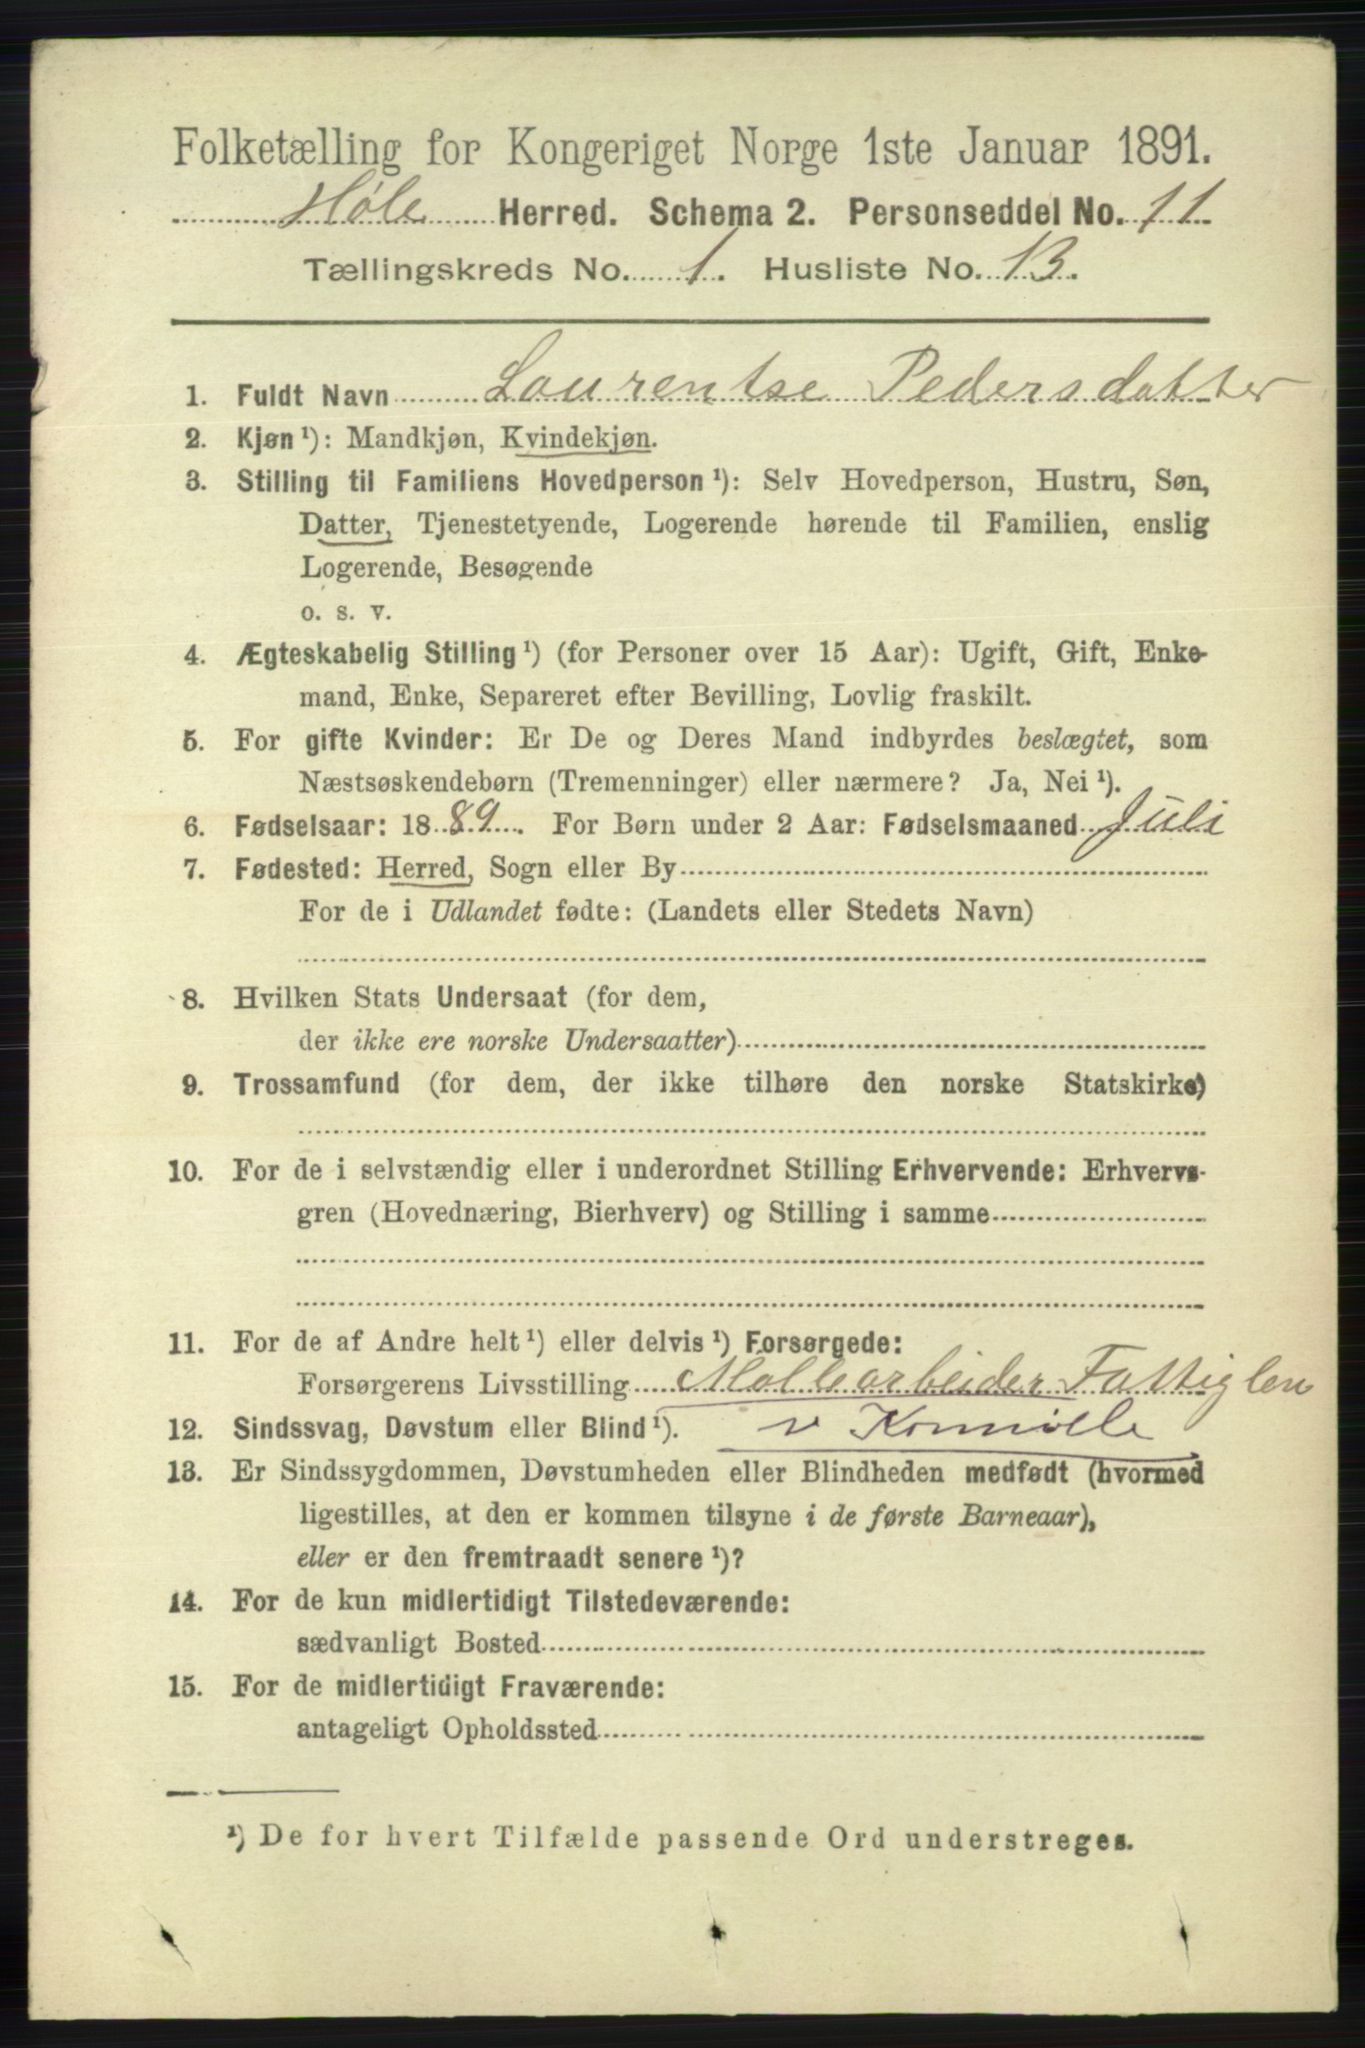 Folketælling for Kongeriget Norge 1ste Januar 1891.
Høle Herred. Schema 2. Personseddel No. 11
Tællingskreds No. 1. Husliste No. 13.
1. Fuldt Navn Laurentse Pedersdatter
2. Kjøn ¹): Mandkjøn, Kvindekjøn.
3. Stilling til Familiens Hovedperson ¹): Selv Hovedperson, Hustru, Søn,
Datter, Tjenestetyende, Logerende hørende til Familien, enslig
Logerende, Besøgende
o. s. v.
4. Ægteskabelig Stilling ¹) (for Personer over 15 Aar): Ugift, Gift, Enke-
mand, Enke, Separeret efter Bevilling, Lovlig fraskilt.
5. For gifte Kvinder: Er De og Deres Mand indbyrdes beslægtet, som
Næstsøskendebørn (Tremenninger) eller nærmere? Ja, Nei ¹).
6. Fødselsaar: 1889. For Børn under 2 Aar: Fødselsmaaned Juli
7. Fødested: Herred, Sogn eller By
For de i Udlandet fødte: (Landets eller Stedets Navn)
8. Hvilken Stats Undersaat (for dem,
der ikke ere norske Undersaatter)
9. Trossamfund (for dem, der ikke tilhøre den norske Statskirke)
10. For de i selvstændig eller i underordnet Stilling Erhvervende: Erhvervs-
gren (Hovednæring, Bierhverv) og Stilling i samme
11. For de af Andre helt ¹) eller delvis ¹) Forsørgede:
Forsørgerens Livsstilling Møllearbeider
12. Sindssvag, Døvstum eller Blind ¹). v Kornmølle
13. Er Sindssygdommen, Døvstumheden eller Blindheden medfødt (hvormed
ligestilles, at den er kommen tilsyne i de første Barneaar),
eller er den fremtraadt senere ¹)?
14. For de kun midlertidigt Tilstedeværende:
sædvanligt Bosted
15. For de midlertidigt Fraværende:
antageligt Opholdssted
¹) De for hvert Tilfælde passende Ord understreges.